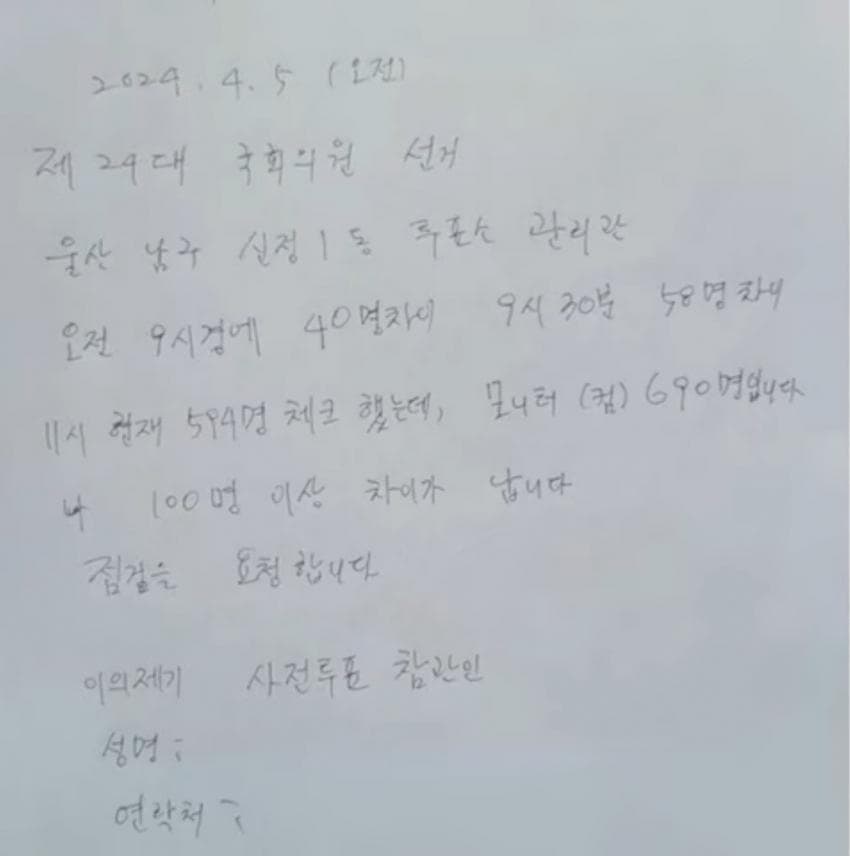 2024. 4. 5 (오전)
제 24대 국회의원 선거
울산 남구 신정1동 투표소 관리관
오전 9시경에 40명차이 9시 30분 58명차이
11시 현재 594명 체크 했는데, 모니터 (컴) 690명입니다
100명 이상 차이가 납니다
점검을 요청합니다
이의제기 사전투표 참관인
성명 ;
연락처 ;